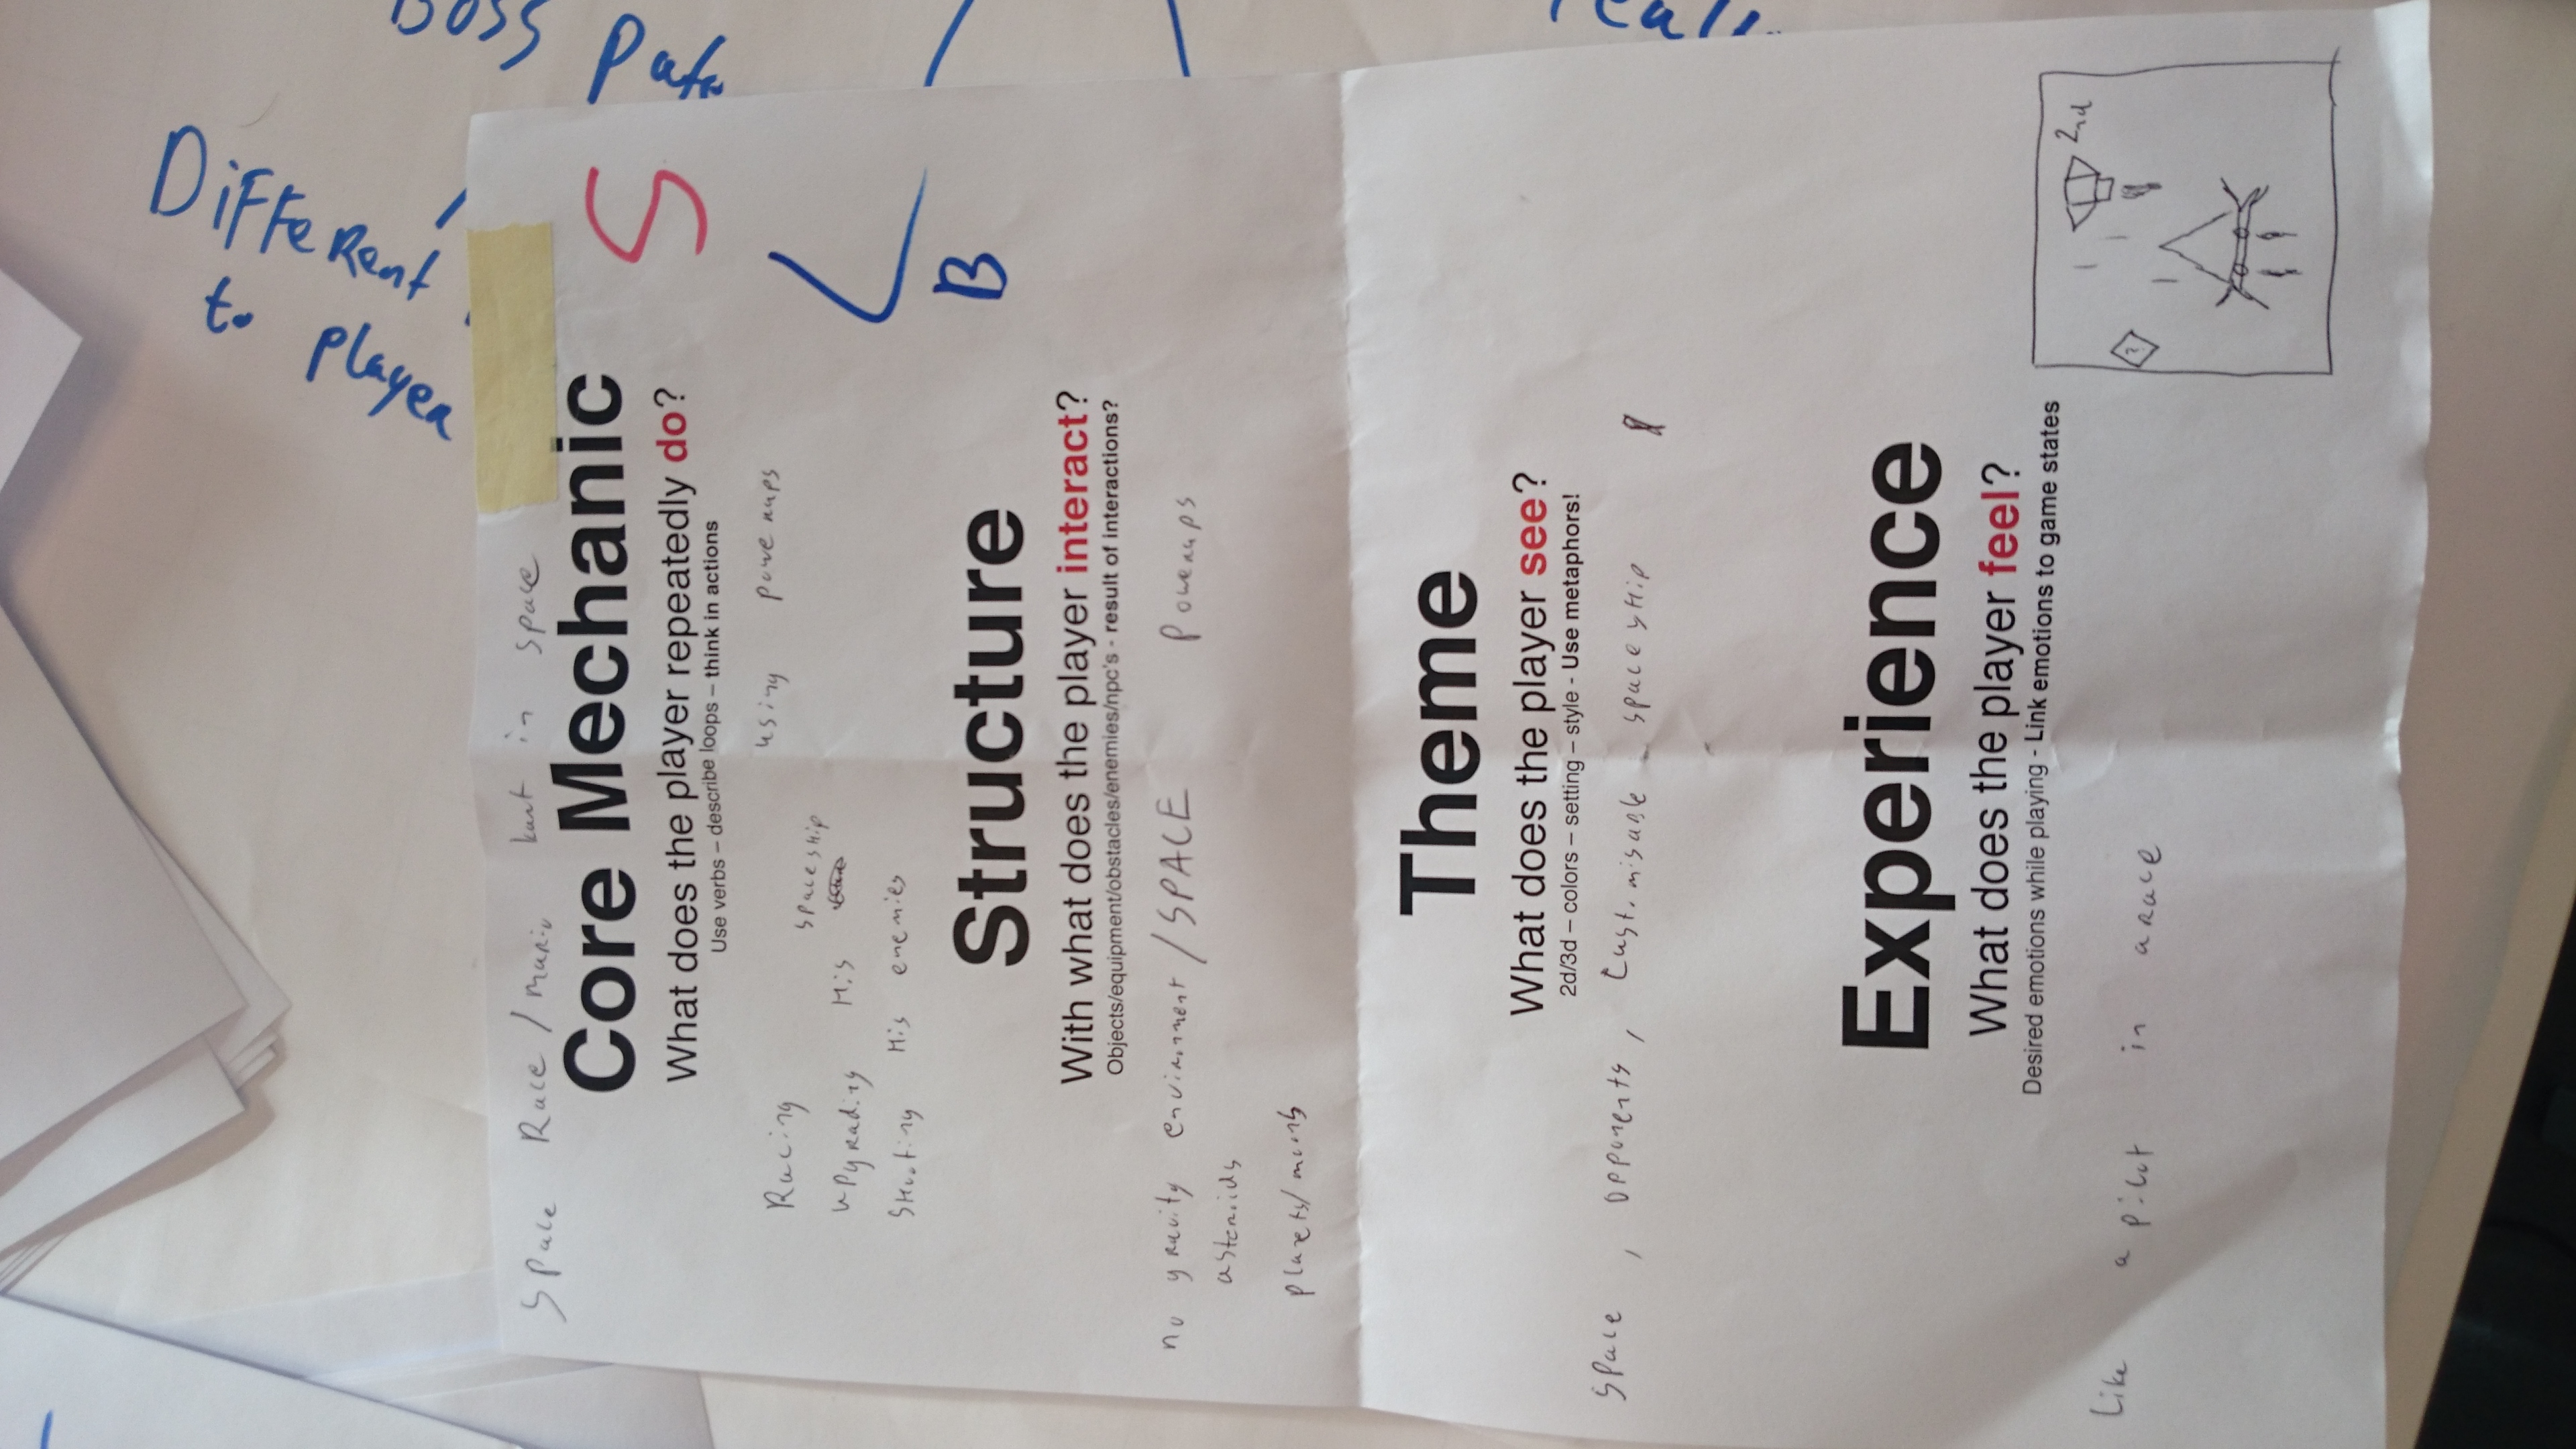 Space Race / Mario kart in space
Core Mechanic
S
What does the player repeatedly do?
Use verbs – describe loops – think in actions
Racing
using powerups
upgrading His spaceship
Shooting His enemies
B
Structure
With what does the player interact?
Objects/equipment/obstacles/enemies/npc's - result of interactions?
no gravity environment / SPACE
Powerups
asteroids
planets/moons
Theme
What does the player see?
2d/3d – colors – setting – style - Use metaphors!
Space , opponents , Customisable spaceyship
Experience
What does the player feel?
Desired emotions while playing - Link emotions to game states
Like a pilot in a race
2nd
?
Different
to player
Boss